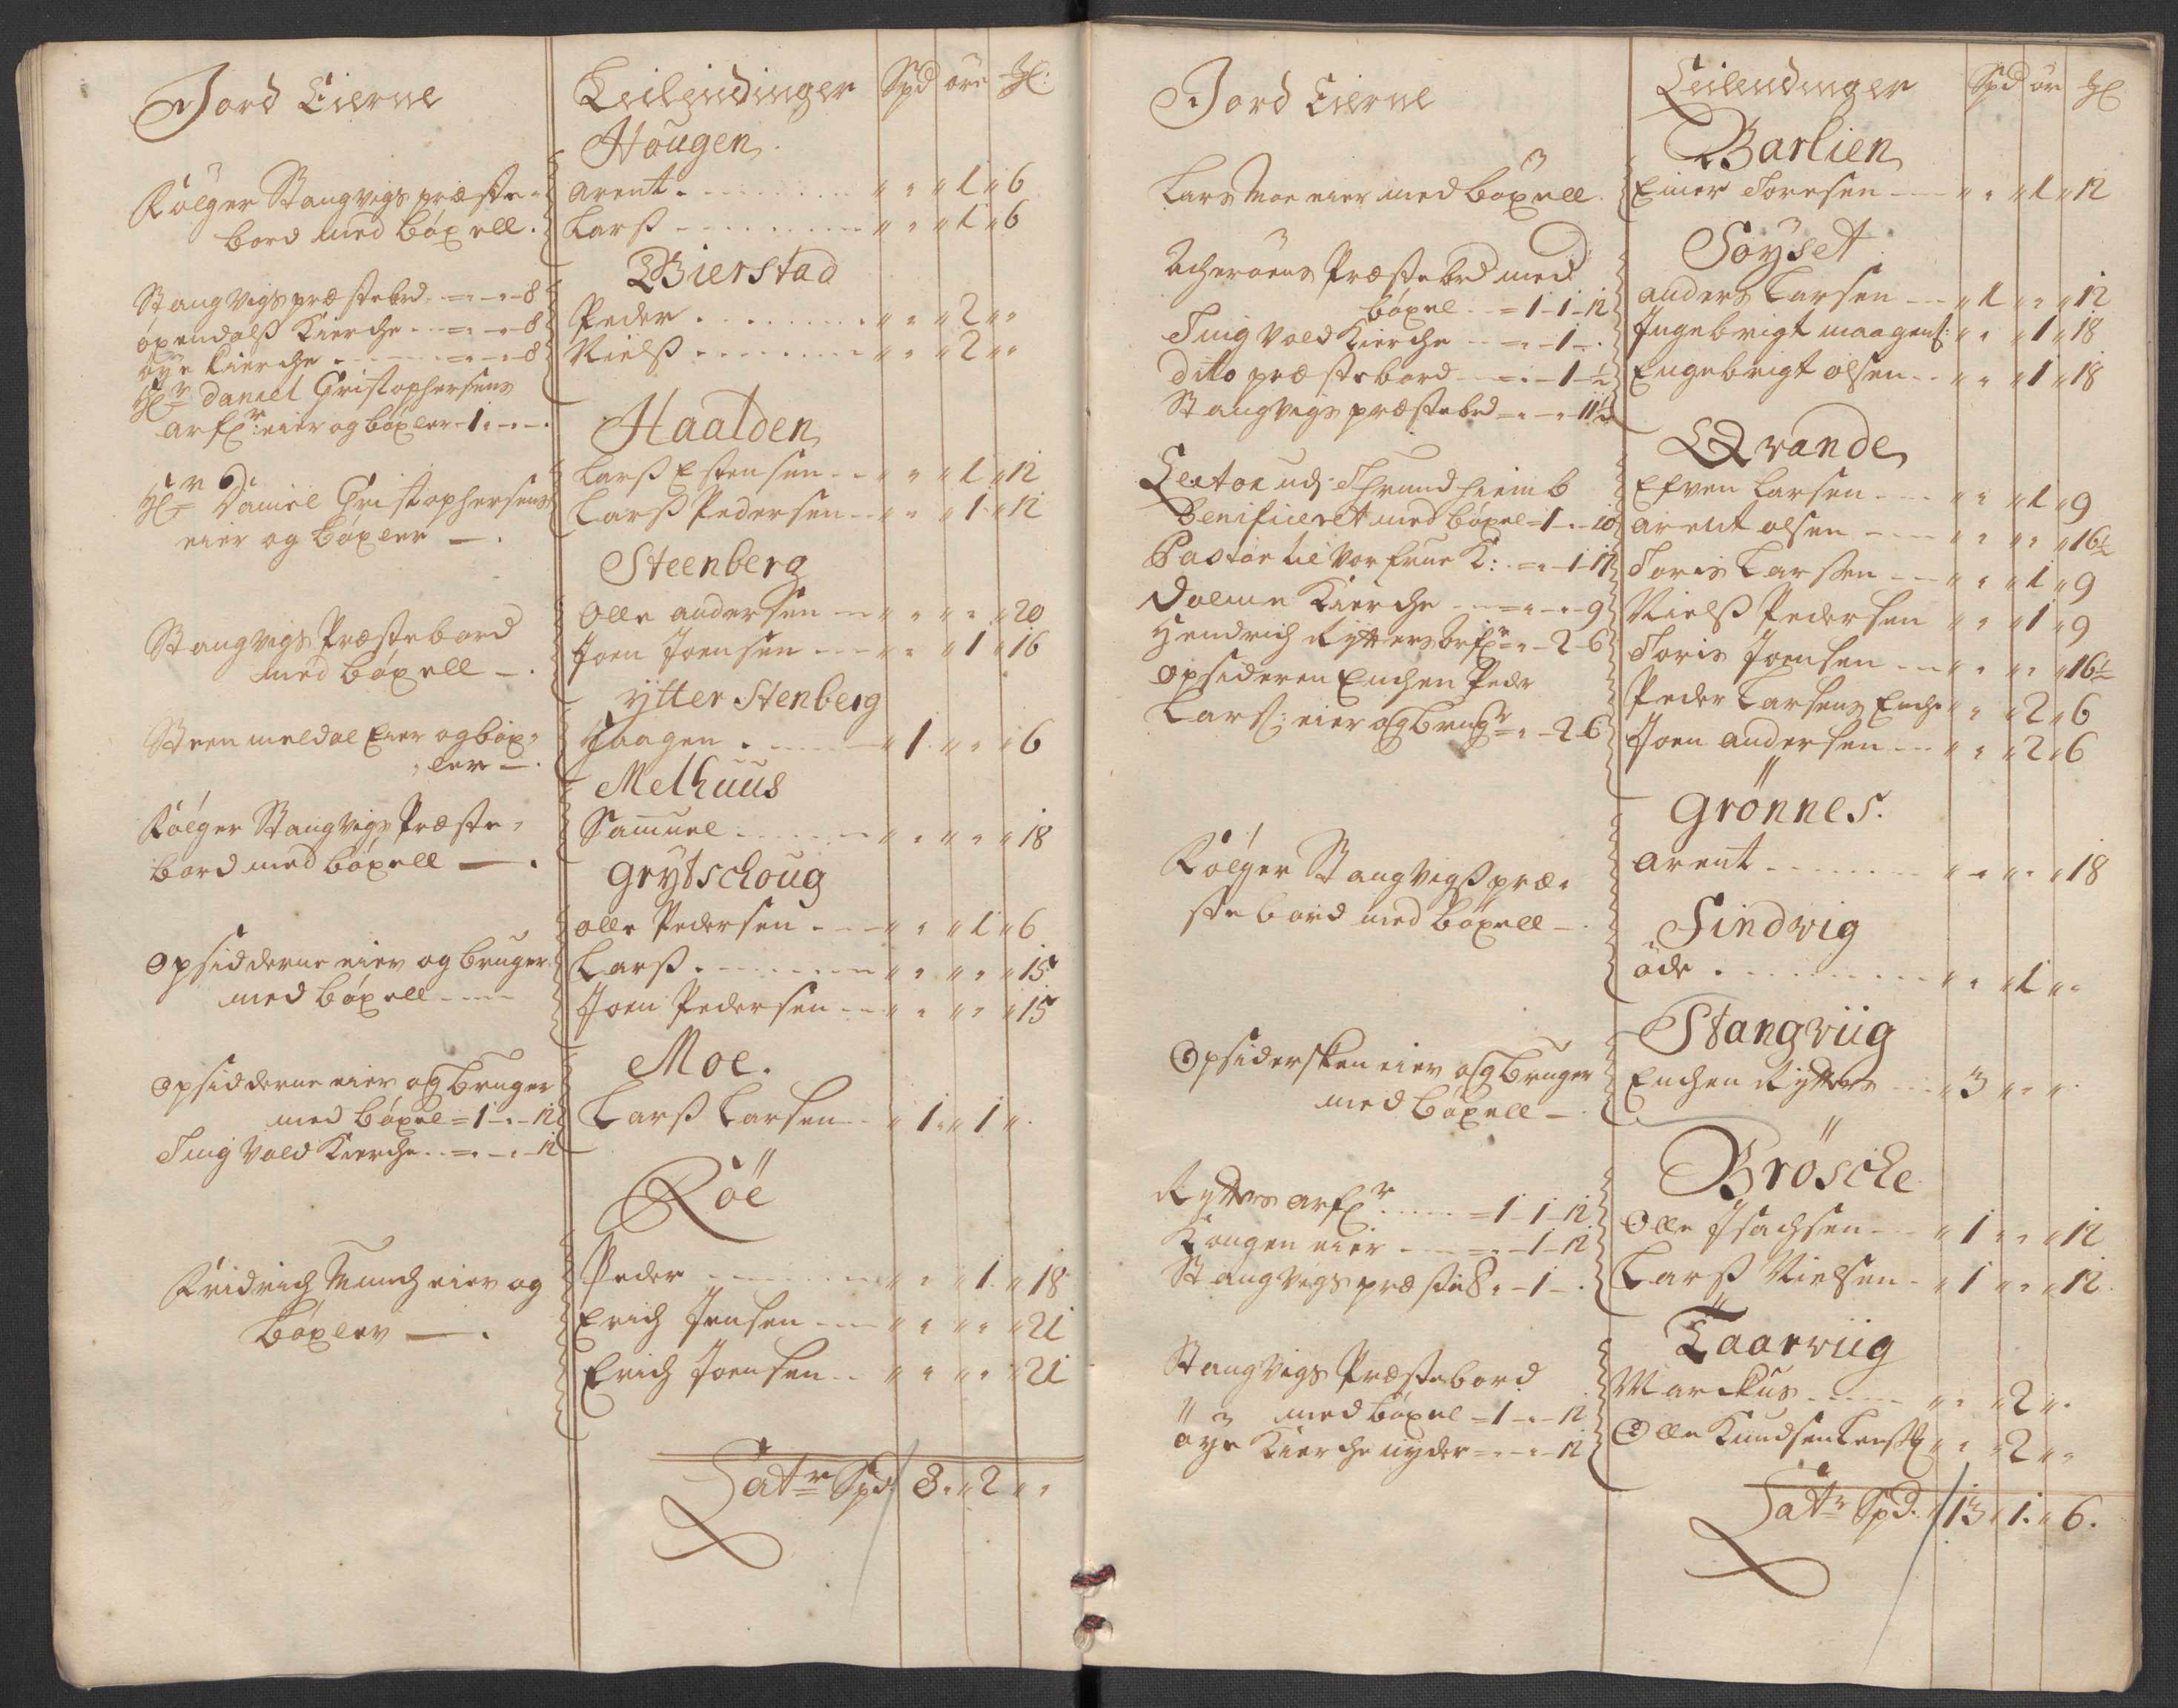 Jord Eierne
Følger Stangvigs præste-
bord med bøxell.
Stangvigs præstebrd. = " - " - 8
øxendalß Kierche - - = " - " - 8
øye Kierche - - - = " - " - 8
Hr Daniel Christophersens
arfr: eier og bøxler - 1 " - " -
Hr Daniel Christophersens
eier og bøxler - .
Stangvigs Præstebord
med bøxell - .
Steen meldal Eier og bøx-
ler - .
Følger Stangvigs Præste-
bord med bøxell - .
Opsidderne eier og bruger
med bøxell - - -
Opsidderne eier og bruger
med bøxel = 1 - " - 12
Tingvold Kierche - - = " - " - 12
Fridrich Munch eier og
bøxler - .
Leilendinger Spd øre Mk:
Hougen
Arent - - - " " " 1 " 6
Larß - - - " " " 1 " 6
Bierstad
Peder - - - " " " 2 " "
Nielß - - - " " " 2 " "
Haalden
Larß Estensen - - " " " 1 " 12
Larß Pedersen - - " " " 1 " 12
Steenberg
Olle andersen - - " " " " " 20
Joen Joensen - - - " " " 1 " 16
ytter Stenberg
Haagen - - - " 1 " " " 6
Melhuus
Samuel - - - " " " " " 18
Grytschoug
olle Pedersen - - - " " " 1 " 6
Larß - - - " " " " " 15
Joen Pedersen - - " " " " " 15
Moe.
Larß Larsen - - " 1 " " 1 " "
Röe
Peder - - - " " " 1 " 18
Erich Jensen - - - " " " " " 21
Erich Joensen - - " " " " " 21
Latr Spd 8 " " 2 " "
Jord Eierne
Lars Moe eier med bøxell.
Acherøens Præstebrd med
bøxel - - = 1 - 1 - 12
Tingvold Kierche - - = " - 1 - .
dito præstebord - - = " - 1 - ½
Stangvigs præstebrd = " - " 11½
Lector udj Thrundhiemb
Benificeret med bøxel = 1 - " - 10
Pastor til Vor frue K: - = " - 1 - 17
Dolme Kierche - - = " - " - 9
Hendrich Rytters arfr = " - 2 - 6
opsideren Enchen Peder
Larß: eier og brugr = " - 2 - 6
Følger Stangvigß præ-
stebord med bøxell - .
Opsidersken eier og bruger
med bøxell - .
Rytters arfr - - - = 1 - 1 - 12
Kongen eier - - - = " - 1 - 12
Stangvigs præsteb " - 1 - .
Stangvigs Præstebord
med bøxel = 1 - " - 12
øye Kierche nyder = " - " - 12
Leilendinger Spd ør Mk
Barlien
Einer Toresen - - " " " 1 " 12
Söyset
anders Larsen - - " 1 " " " 12
Ingebrigt maagens: " " " 1 " 18
Engebrigt olsen - - " " " 1 " 18
Qvande
Efven Larsen - - " " " 1 " 9
arent olsen - - - " " " " " 16½
Toris Larsen - - " " " 1 " 9
Nielß Pedersen " " " 1 " 9
Toris Joensen - - " " " " " 16½
Peder Larsens Enche " " " 2 " 6
Joen andersen - - " " " 2 " 6
Grönnes.
arent - - - " " " " " 18
Sindvig
öde - - - " " " 1 " "
Stangviig
Enchen Rytters - - " 3 " " "
Brösche
Olle Isachsen - - " 1 " " " 12
Larß Nielsen - " 1 " " " 12
Taarviig
Marckus - - - " " " 2 " "
Olle Knudsen " " " 2 " "
Latr Spd. 13 " 1 " 6.